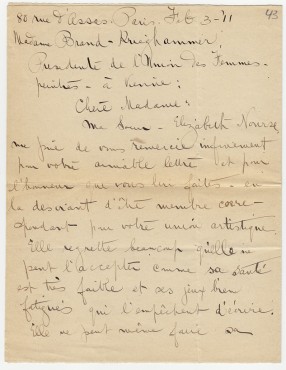 80 rue d'Assas. Paris. Feb 3-11
43
Madame Brend-Krieghammer,
Presidente de l'Union des Femmes-
peintres - à Vienne:
Chere Madame:
Ma Soeur - Elizabeth Nourse
me prie de vous remercier infiniment
pour votre aimable lettre et pour
l'honneur que vous lui faites - en
la desirant d'être membre corres-
pondant pour votre union artistique.
Elle regrette beaucoup qu'elle ne
peut l'accepter comme sa santé
est très faible et ses yeux bien
fatigués qui l'empêchent d'écrire.
Elle ne peut même faire sa